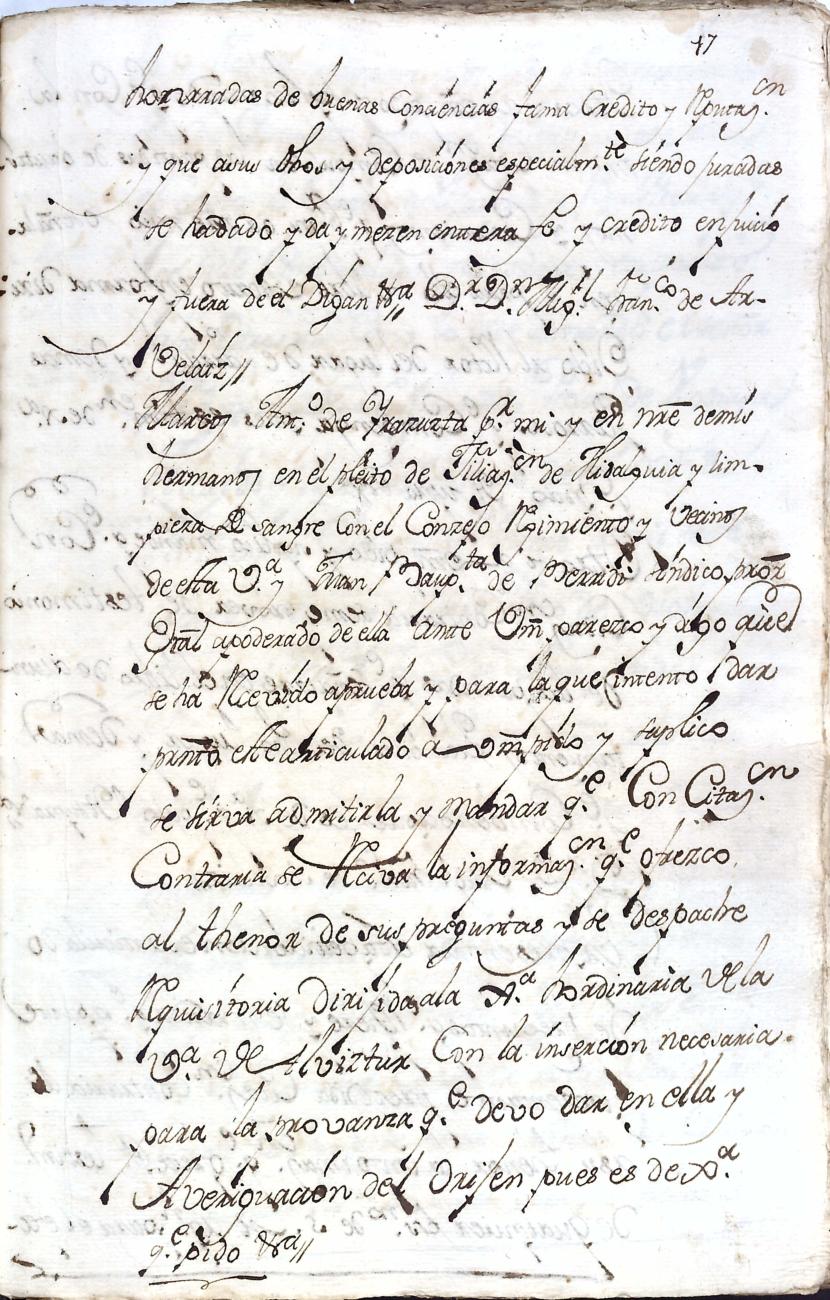 47
honrradas de buenas Conciencias fama Credito y Reputaz.on
y que asus dhos y deposiciones especialm.te siendo juradas
se hadado y da y merezen entera fe y credito enjuicio
y fuera de el Digan &.a // D.r D.n Mig.l Fran.co de Ar-
velaiz //
Marcos Ant.o de Yrazusta p.r mi y en nre demis
hermanos en el pleito de Filiaz.on de Hidalguia y lim-
pieza de sangre Con el Conzejo Reximiento y Vecinos
de esta V.a y Juan Baup.ta de Berridi sindico pror
Gral apoderado de ella ante Vm parezco y digo que
se ha Recevido aprueba y para la que intento dar
prnto este articulado a Vm pido y suplico
se sirva admitirla y mandar q.e Con Citaz.on
Contraria se Reciva la informaz.on q.e ofrezco
al thenor de sus preguntas y se despache
Requisitoria Dirijida ala X.a hordinaria de la
V.a de Alviztur Con la inserción necesaria
para la provanza q.e devo dar en ella y
Averiguación del Orijen pues es de X.a
q.e pido &.a //